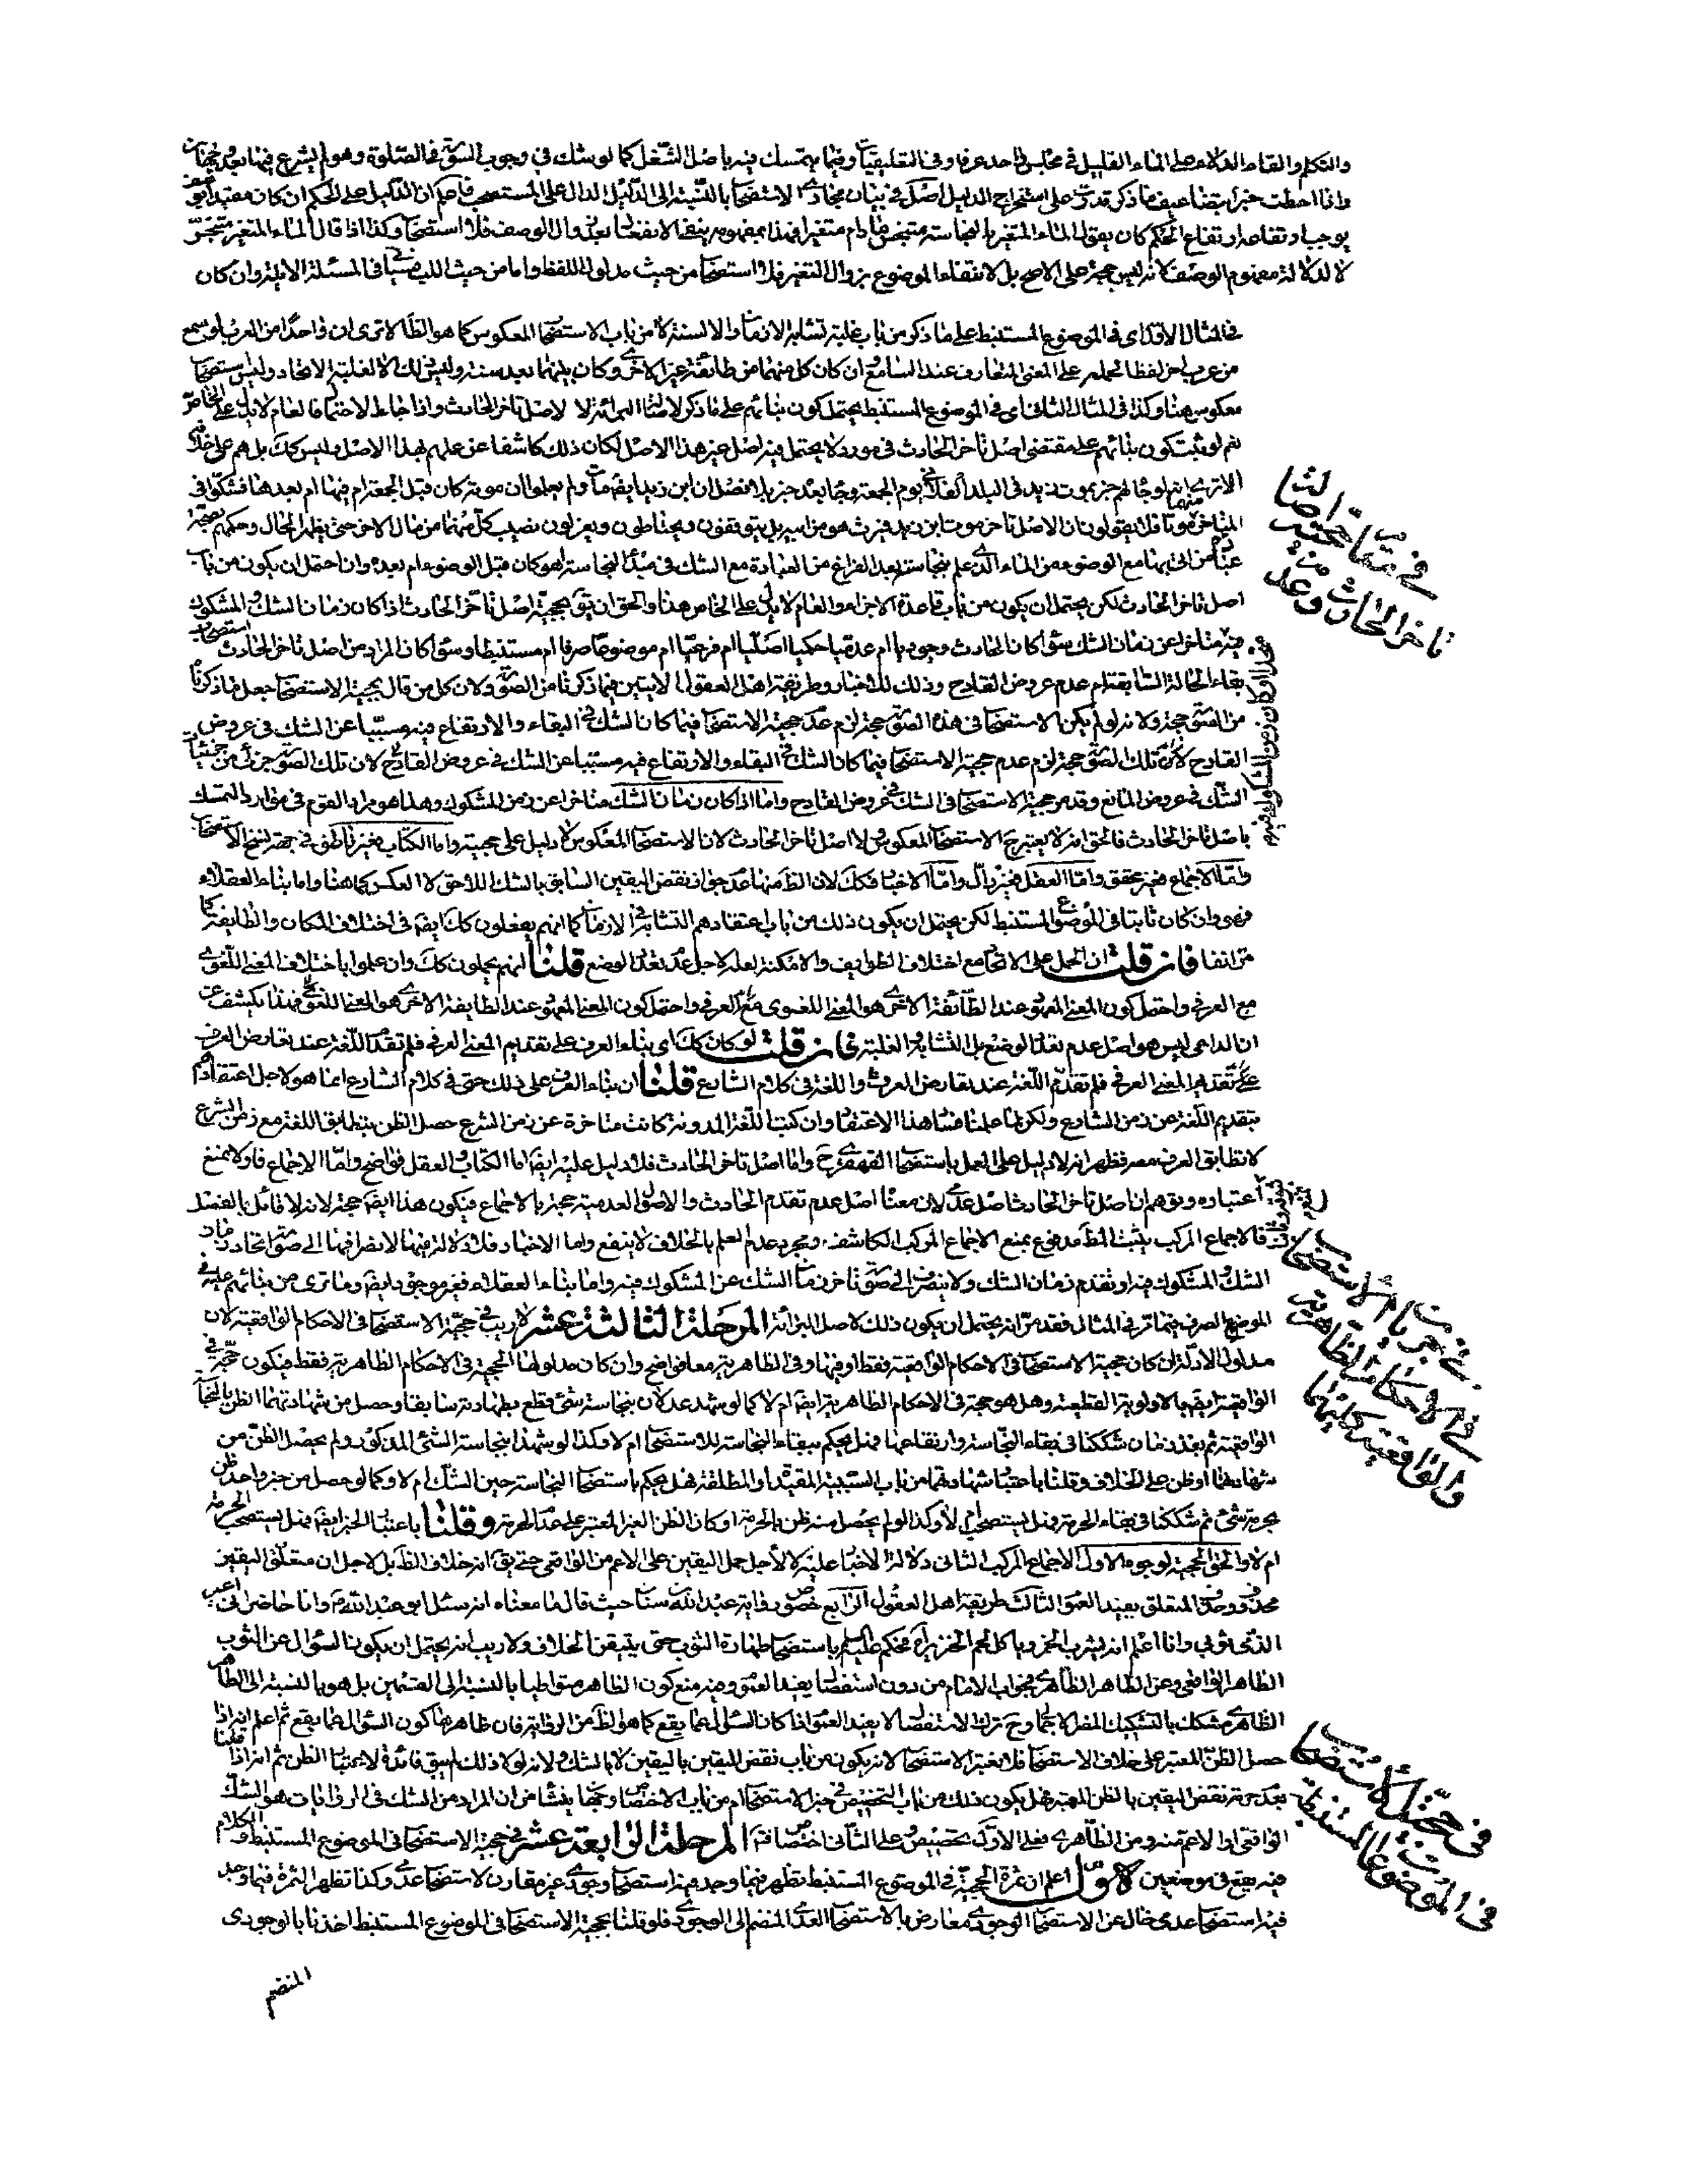 والتكلم والقاء الدلاء على الماء القليل في مجلس واحد عرفا وفي التعليقيات وفيما يتمسك فيه باصل الشغل كما لو شك في وجوب السورة في الصلوة وهو لم يشرع فيها بعد
واذا احطت خبرا بتضاعيف ما ذكر قدرت على استخراج الدليل اصل في بيان مجاري الاستصحاب بالنسبة الى الدليل الدال على المستصحب فاعلم ان الدليل على الحكم ان كان مقيدا
يوجب ارتفاعه ارتفاع الحكم كان يقول الماء المتغير بالنجاسة متنجس ما دام متغيرا فهذا بمفهومه ينفي الانفعال بعد زوال الوصف فلا استصحاب وكذا اذا قال الماء المتغير متنجس
لا لدلالة مفهوم الوصف لانه ليس حجة على الاصح بل لانتفاء الموضوع بزوال التغير فلا استصحاب من حيث مدلول اللفظ واما من حيث اللب في المسئلة الاتية وان كان
في المثال الاول اي في الموضوع المستنبط على ما ذكر من باب غلبة تشابه الازمان والالسنة لا من باب الاستصحاب المعكوس كما هو الظ الا ترى ان واحدا من العرب لو سمع
من عربي اخر لفظا لحمله على المعنى المتعارف عند السامع ان كان كل منهما من طائفة غير الاخرى وكان بينهما بعد سنة وليس ذلك الا لغلبة الاتحاد وليس استصحاب
معكوس هنا وكذا في المثال الثاني اي في الموضوع المستنبط يحتمل كون بنائهم على ما ذكر لاصالة البرائة لا لاصل تاخر الحادث واذا جاء الاحتمال فالعام لا يدل على الخاص
نعم لو ثبت كون بنائهم على مقتضى اصل تاخر الحادث في مورد لا يحتمل فيه اصل غير هذا الاصل لكان ذلك كاشفا عن علمهم بهذا الاصل وليس كك بل هم على خلافه
الا ترى انهم لو جائهم خبر بموت زيد في البلد الفلاني يوم الجمعة وجاء بعد خبر بلا فصل ان ابن زيد ايضا مات ولم يعلموا ان موته كان قبل الجمعة ام فيها ام بعدها فشكوا في
المتاخر منهما موتا فلا يقولون ان الاصل تاخر موت ابن زيد فيرث هو من ابيه بل يتوقفون ويحتاطون ويعزلون نصيب كل منهما من مال الاخر حتى يظهر الحال وحكمهم بصحة
عبادة من اتى بها مع الوضوء من الماء الذي علم بنجاسته بعد الفراغ من العبادة مع الشك في مبدء النجاسة اهو كان قبل الوضوء ام بعده وان احتمل ان يكون من باب
اصل تاخر الحادث لكن يحتمل ان يكون من باب قاعدة الاجزاء والعام لا يدل على الخاص هذا والحق ان يق بحجية اصل تاخر الحادث اذا كان زمان الشك والمشكوك
فيه متاخرا عن زمان الشك سواء كان الحادث وجوديا ام عدميا حكميا اصليا ام فرعيا ام موضوعا صرفا ام مستنبطا وسواء كان المراد من اصل تاخر الحادث استصحاب
بقاء الحالة السابقة ام عدم عروض القادح وذلك للاخبار وطريقة اهل العقول الاتيتين فيما ذكرنا من الصور ولان كل من قال بحجية الاستصحاب جعل ما ذكرنا
من الصور حجة ولانه لو لم يكن الاستصحاب في هذه الصور حجة لزم عدم حجية الاستصحاب فيما كان الشك في البقاء والارتفاع فيه مسببا عن الشك في عروض
القادح لان تلك الصور حجة لزم عدم حجية الاستصحاب فيما كان الشك في البقاء والارتفاع فيه مسببا عن الشك في عروض القادح لان تلك الصور جزئي من جزئيات
الشك في عروض المانع وقد مر حجية الاستصحاب في الشك في عروض القادح واما اذا كان زمان الشك متاخرا عن زمن المشكوك وهذا هو مراد القوم في موارد التمسك
باصل تاخر الحادث فالحق انه لا يعتبر ح الاستصحاب المعكوس لا اصل تاخر الحادث لان الاستصحاب المعكوس لا دليل على حجيته واما الكتاب فغير ناطق في جهة الاستصحاب
واما الاجماع فغير محقق واما العقل فغير دال واما الاخبار فكك لان الظ منها عدم جواز نقض اليقين السابق بالشك اللاحق لا العكس كما هنا واما بناء العقلاء
فهو وان كان ثابتا في الموضوع المستنبط لكن يحتمل ان يكون ذلك من باب اعتقادهم التشابه في الازمان كما انهم يفعلون كك ايضا في اختلاف المكان والطايفة كما
مر انفا فان قلت ان الحمل على الاتحاد مع اختلاف الطوايف والامكنة لعله لاجل عدم تعدد الوضع قلنا انهم يحملون كك وان علموا باختلاف المعنى اللغوي
مع العرفي واحتمل كون المعنى المعهود عند الطائفة الاخرى هو المعنى اللغوي مع العرفي واحتمل كون المعنى المعهود عند الطايفة الاخرى هو المعنى اللغوي فهذا يكشف عن
ان الداعي ليس هو اصل عدم تعدد الوضع بل التشابه الغلبة فان قلت لو كان كك اي بناء العرف على تقديم المعنى العرفي فلم تقدم اللغة عند تعارض العرف
على تقديم المعنى العرفي فلم تقدم اللغة عند تعارض العرف واللغة في كلام الشارع قلنا ان بناء العرف على ذلك حتى في كلام الشارع انما هو لاجل اعتقادهم
بتقديم اللغة من زمن الشارع ولكن لما علمنا فساد هذا الاعتقاد وان كتب اللغة المدونة كانت متاخرة عن زمن الشرع حصل الظن بتطابق اللغة مع زمن الشرع
لا تطابق العرف معه فظهر انه لا دليل على العمل باستصحاب القهقرى ح واما اصل تاخر الحادث فلا دليل عليه ايضا اما الكتاب والعقل فواضح واما الاجماع فاولا نمنع
اعتباره وتوهم ان اصل تاخر الحادث اصل عدمي لان معناه اصل عدم تقدم الحادث والاصول العدمية حجة بالاجماع فيكون هذا ايضا حجة لانه لا قائل بالفصل
فالاجماع المركب يثبت المط مدفوع بمنع الاجماع المركب الكاشف ومجرد عدم العلم بالخلاف لا ينفع واما الاخبار فلا دلالة فيها لانصرافها الى صورة اتحاد زمان
الشك والمشكوك فيه او تقدم زمان الشك ولا ينصرف الى صورة تاخر زمان الشك عن المشكوك فيه واما بناء العقلاء فغير موجود ايضا وما ترى من بنائهم عليه في
الموضوع الصرف فيما مر في المثال فقد مر انه يحتمل ان يكون ذلك لاصل البرائة المرحلة الثالثة عشر لا ريب في حجية الاستصحاب في الاحكام الواقعية لان
مدلول الادلة ان كان حجية الاستصحاب في الاحكام الواقعية فقط او فيها وفي الظاهرية معا فواضح وان كان مدلولها الحجية في الاحكام الظاهرية فقط فيكون حجة في
الواقعية ايضا بالاولوية القطعية وهل هو حجة في الاحكام الظاهرية ايضا ام لا كما لو شهد عدلان بنجاسة شئ قطع بطهارته سابقا وحصل من شهادتهما الظن بالنجاسة
الواقعية ثم بعد زمان شككنا في بقاء النجاسة وارتفاعها فهل يحكم ببقاء النجاسة للاستصحاب ام لا وكذا لو شهدا بنجاسة الشئ المذكور ولم يحصل الظن من
شهادتهما او ظن على الخلاف وقلنا باعتبار شهادتهما من باب السببية المقيدة او المطلقة فهل يحكم باستصحاب النجاسة حين الشك ام لا وكما لو حصل من خبر واحد ظن
بحرمة شئ ثم شككنا في بقاء الحرمة فهل يستصحب ام لا وكذا لو لم يحصل منه ظن بالحرمة او كان الظن الغير المعتبر على عدم الحرمة وقلنا باعتبار الخبر ايضا فهل يستصحب الحرمة
ام لا والحق الحجية لوجوه الاول الاجماع المركب الثاني دلالة الاخبار عليه لا لاجل حمل اليقين على الاعم من الواقعي حتى يق انه خلاف الظ بل لاجل ان متعلق اليقين
محذوف وحذف المتعلق يفيد العموم الثالث طريقة اهل العقول الرابع خصوص رواية عبد الله بن سنان حيث قال ما معناه انه سئل ابو عبد الله وانا حاضر اني اعير
الذمي ثوبي وانا اعلم انه يشرب الخمر وياكل لحم الخنزير فحكم عليه السلم باستصحاب طهارة الثوب حتى يتيقن الخلاف ولا ريب انه يحتمل ان يكون السؤال عن الثوب
الظاهر الواقعي وعن الطاهر الظاهري فجواب الامام من دون استفصال يفيد العموم وفيه منع كون الطاهر متواطيا بالنسبة الى القسمين بل هو بالنسبة الى الطاهر
الظاهري مشكك بالتشكيك المضر الاجمالي وح ترك الاستفصال لا يفيد العموم اذا كان السؤال عما يقع كما هو الظ من الرواية فان ظاهرها كون السؤال عما يقع ثم اعلم انه اذا
حصل الظن المعتبر على خلاف الاستصحاب فلا يعتبر الاستصحاب لانه يكون من باب نقض اليقين باليقين لا بالشك ولانه لولا ذلك لم يبق فائدة لاعتبار الظن ثم انه اذا قلنا
بعدم حرمة نقض اليقين بالظن المعتبر فهل يكون ذلك من باب التخصيص في خبر الاستصحاب ام من باب الاختصاص وجهان ينشأ من ان المراد من الشك في الروايات هو الشك
الواقعي او الاعم منه ومن الظاهري فعلى الاول تخصيص وعلى الثاني اختصاص المرحلة الرابعة عشر في حجية الاستصحاب في الموضوع المستنبط والكلام
فيه يقع في موضعين الاول اعلم ان ثمرة الحجية في الموضوع المستنبط تظهر فيما وجد فيه استصحاب وجودي غير مقارن لاستصحاب عدمي وكذا تظهر الثمرة فيما وجد
فيه استصحاب عدمي خال عن الاستصحاب الوجودي معارض بالاستصحاب العدمي المنضم الى الوجودي فلو قلنا بحجية الاستصحاب في الموضوع المستنبط اخذنا بالوجودي
المنضم
في بيان اصالة
تاخر الحادث وعدمه
في جريان الاستصحاب
في الاحكام الظاهرية
والواقعية كليهما
في حجية الاستصحاب
في الموضوع المستنبط